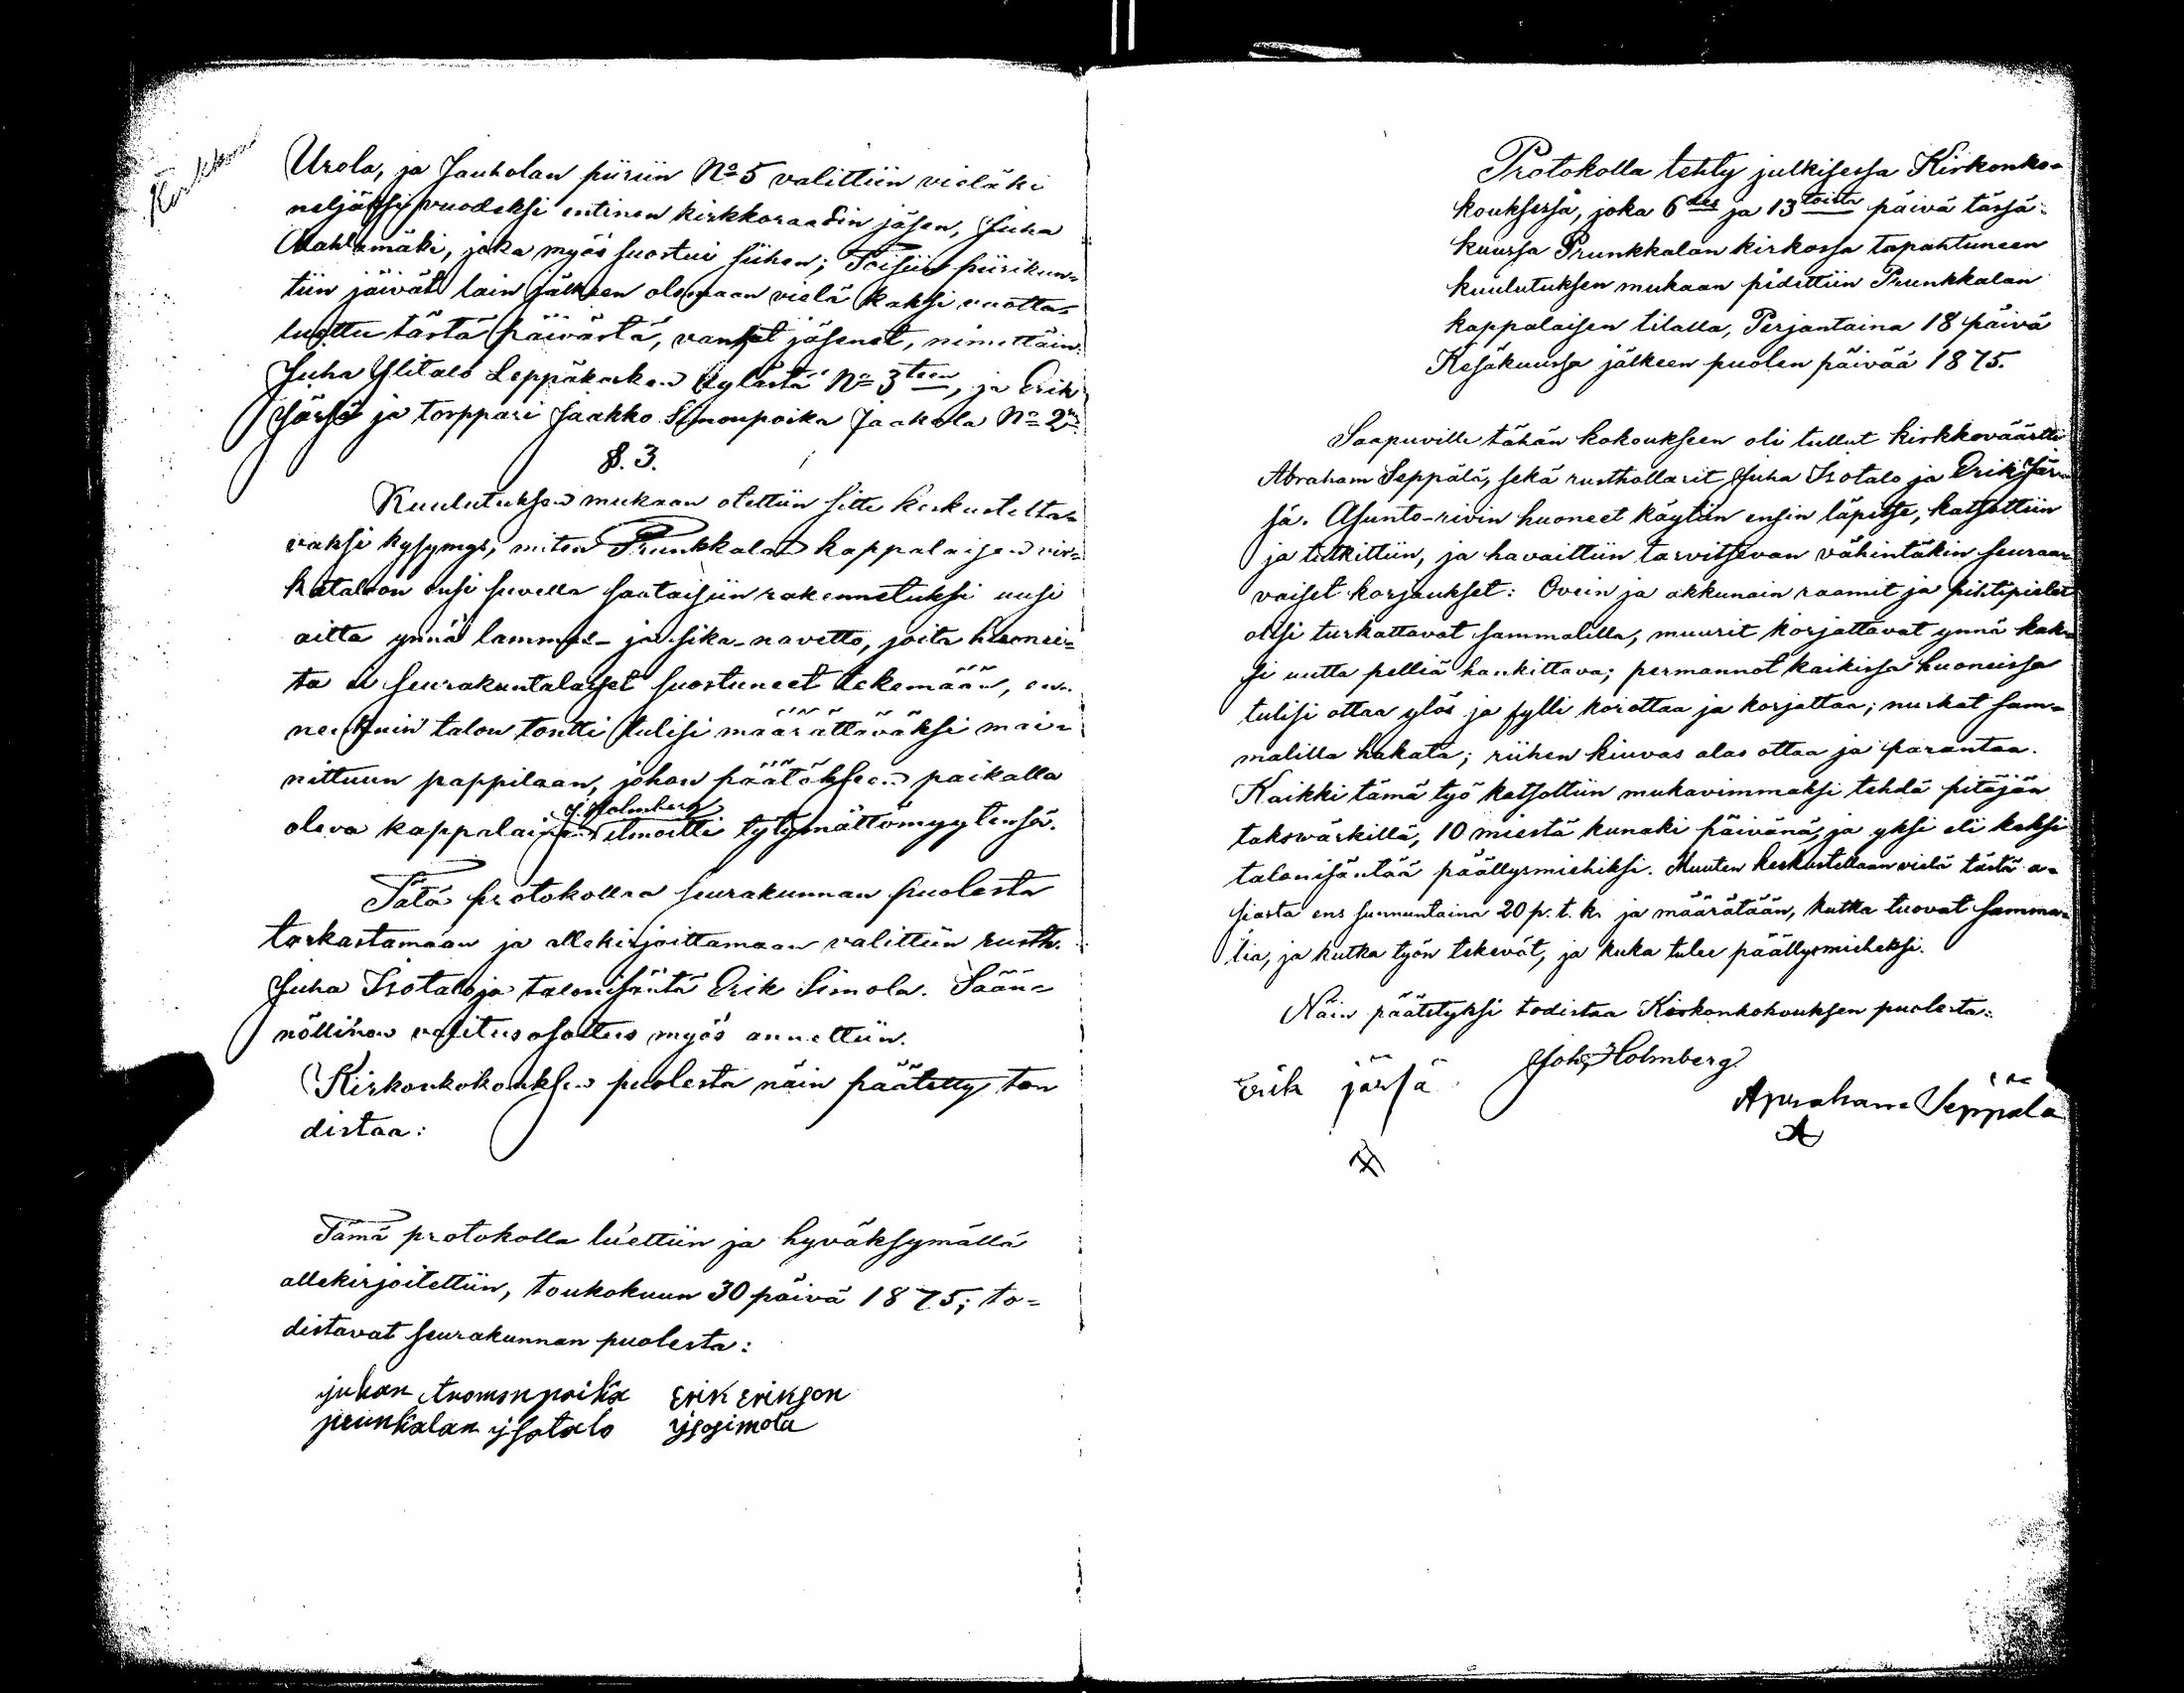 Kirkkoraa
Urola, ja Jauholan piiriin No 5 valittiin vieläki
neljäksi vuodeksi entinen kirkkoraadin jäsen, Juha
Mahlamäki, joka myös suostui siihen; Toisiin piirikun=
tiin jäivät lain jälkeen olemaan vielä kaksi vuotta
luettu tästä päivästä, vanhat jäsenet, nimittäin:
Juha Ylitalo Leppäkosken kylästä No 3 teen, ja Erik
Järsä ja torppari Jaakko Simonpoika Jaakola No 2
§. 3.
Kuulutuksen mukaan otettiin sitte keskustelta=
vaksi kysymys, miten Prunkkalan kappalaisen vir=
kataloon ensi suvella saataisiin rakennetuksi uusi
aitta ynnä lammas- ja sika-navetto, joita huonei=
ta ei seurakuntalaiset suostuneet tekemään, en=
nenkuin talon tontti tulisi määrättäväksi mai=
nittuun pappilaan, johon päätökseen paikalla
J. Holmberg
oleva kappalainen ilmoitti tytymättömyytensä.
Tätä protokollaa seurakunnan puolesta
tarkastamaan ja allekirjoittamaan valittiin rusth.
Juha Isotalo ja talonisäntä Erik Simola. Sään=
nöllinen valitusosoitus myös annettiin.
Kirkonkokouksen puolesta näin päätetty ton
distaa:
Tämä protokolla lu'ettiin ja hyväksymällä
allekirjoitettiin, toukokuun 30 päivä 1875; to=
distavat seurakunnan puolesta:
juhan tuomonpoika Erik Erikson
prunkalan ysotalo ysosimola
Protokolla tehty julkisessa Kirkonko=
kouksessa, joka 6 des ja 13 toista päivä tässä=
kuussa Prunkkalan kirkossa tapahtuneen
kuulutuksen mukaan pidettiin Prunkkalan
kappalaisen tilalla, Perjantaina 18 päivä
Kesäkuussa jälkeen puolen päivää 1875.
Saapuville tähän kokoukseen oli tullut kirkkoväärtti
Abraham Seppälä, sekä rusthollarit Juha Isotalo ja Erik Jär=
sä. Asunto-rivin huoneet käytiin ensin läpitse, katsottiin
ja tutkittiin, ja havaittiin tarvitsevan vähintäkin seuraa=
vaiset korjaukset: Ovein ja akkunain raamit ja pihtipielet
olisi turkattavat sammalilla, muurit korjattavat ynnä kak=
si uutta peltiä hankittava; permannot kaikissa huoneissa
tulisi ottaa ylös ja sylli korottaa ja korjattaa; nurkat sam=
malilla hakata; riihen kiuvas alas ottaa ja parantaa.
Kaikki tämä työ katsottiin mukavimmaksi tehdä pitäjän
takswärkillä, 10 miestä kunaki päivänä, ja yksi eli kaksi
talonisäntää päällysmiehiksi. Muuten keskustellaan vielä tästä a=
siasta ens sunnuntaina 20 p. t. k. ja määrätään, kutka tuovat samma=
lia, ja kutka työn tekevät, ja kuka tulee päällysmieheksi.
Näin päätetyksi todistaa Kirkonkokouksen puolesta:
Joh. Holmberg
Erik järsä
Aprahame Seppälä
A